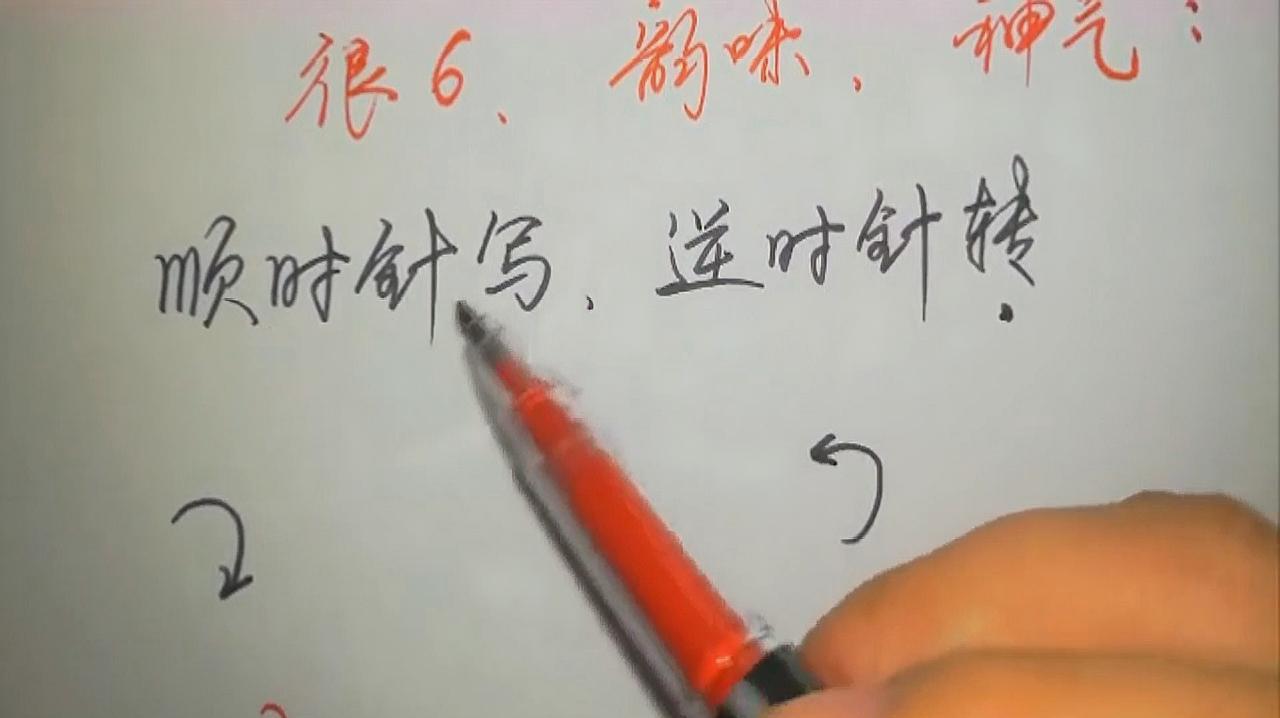 很6、韵味、神气:
顺时针写、逆时针转.